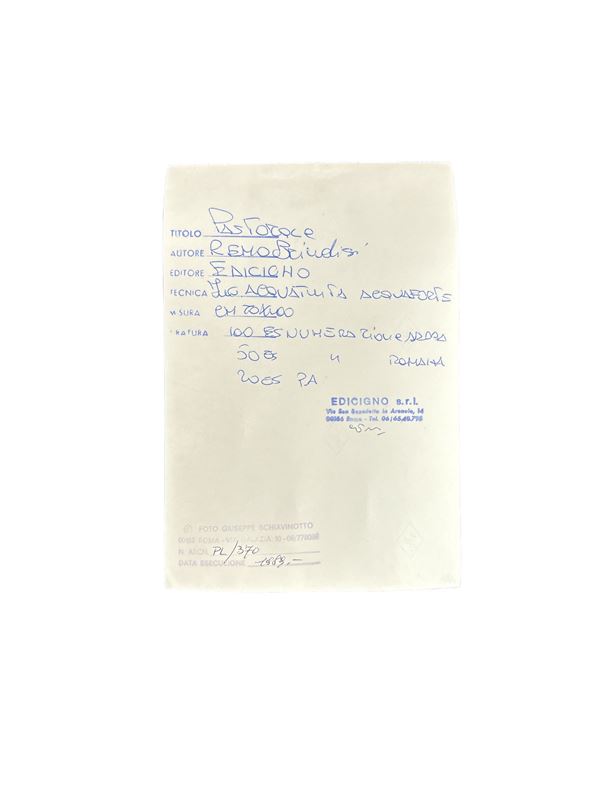 TITOLO PASTORALE
AUTORE REMO Brindisi
EDITORE EDICIGNO
TECNICA ACQUATINTA ACQUAFORTE
MISURA CM 70X100
TIRATURA 100 ES NUMERAZIONE ARABA
50 ES " ROMANA
20 ES PA
EDICIGNO s.r.l.
Via San Benedetto in Arenula, 14
00186 Roma - Tel. 06/65.48.798
© FOTO GIUSEPPE SCHIAVINOTTO
ROMA - VIA 10 -
N. ARCH. PL/370
DATA ESECUZIONE 1989.-